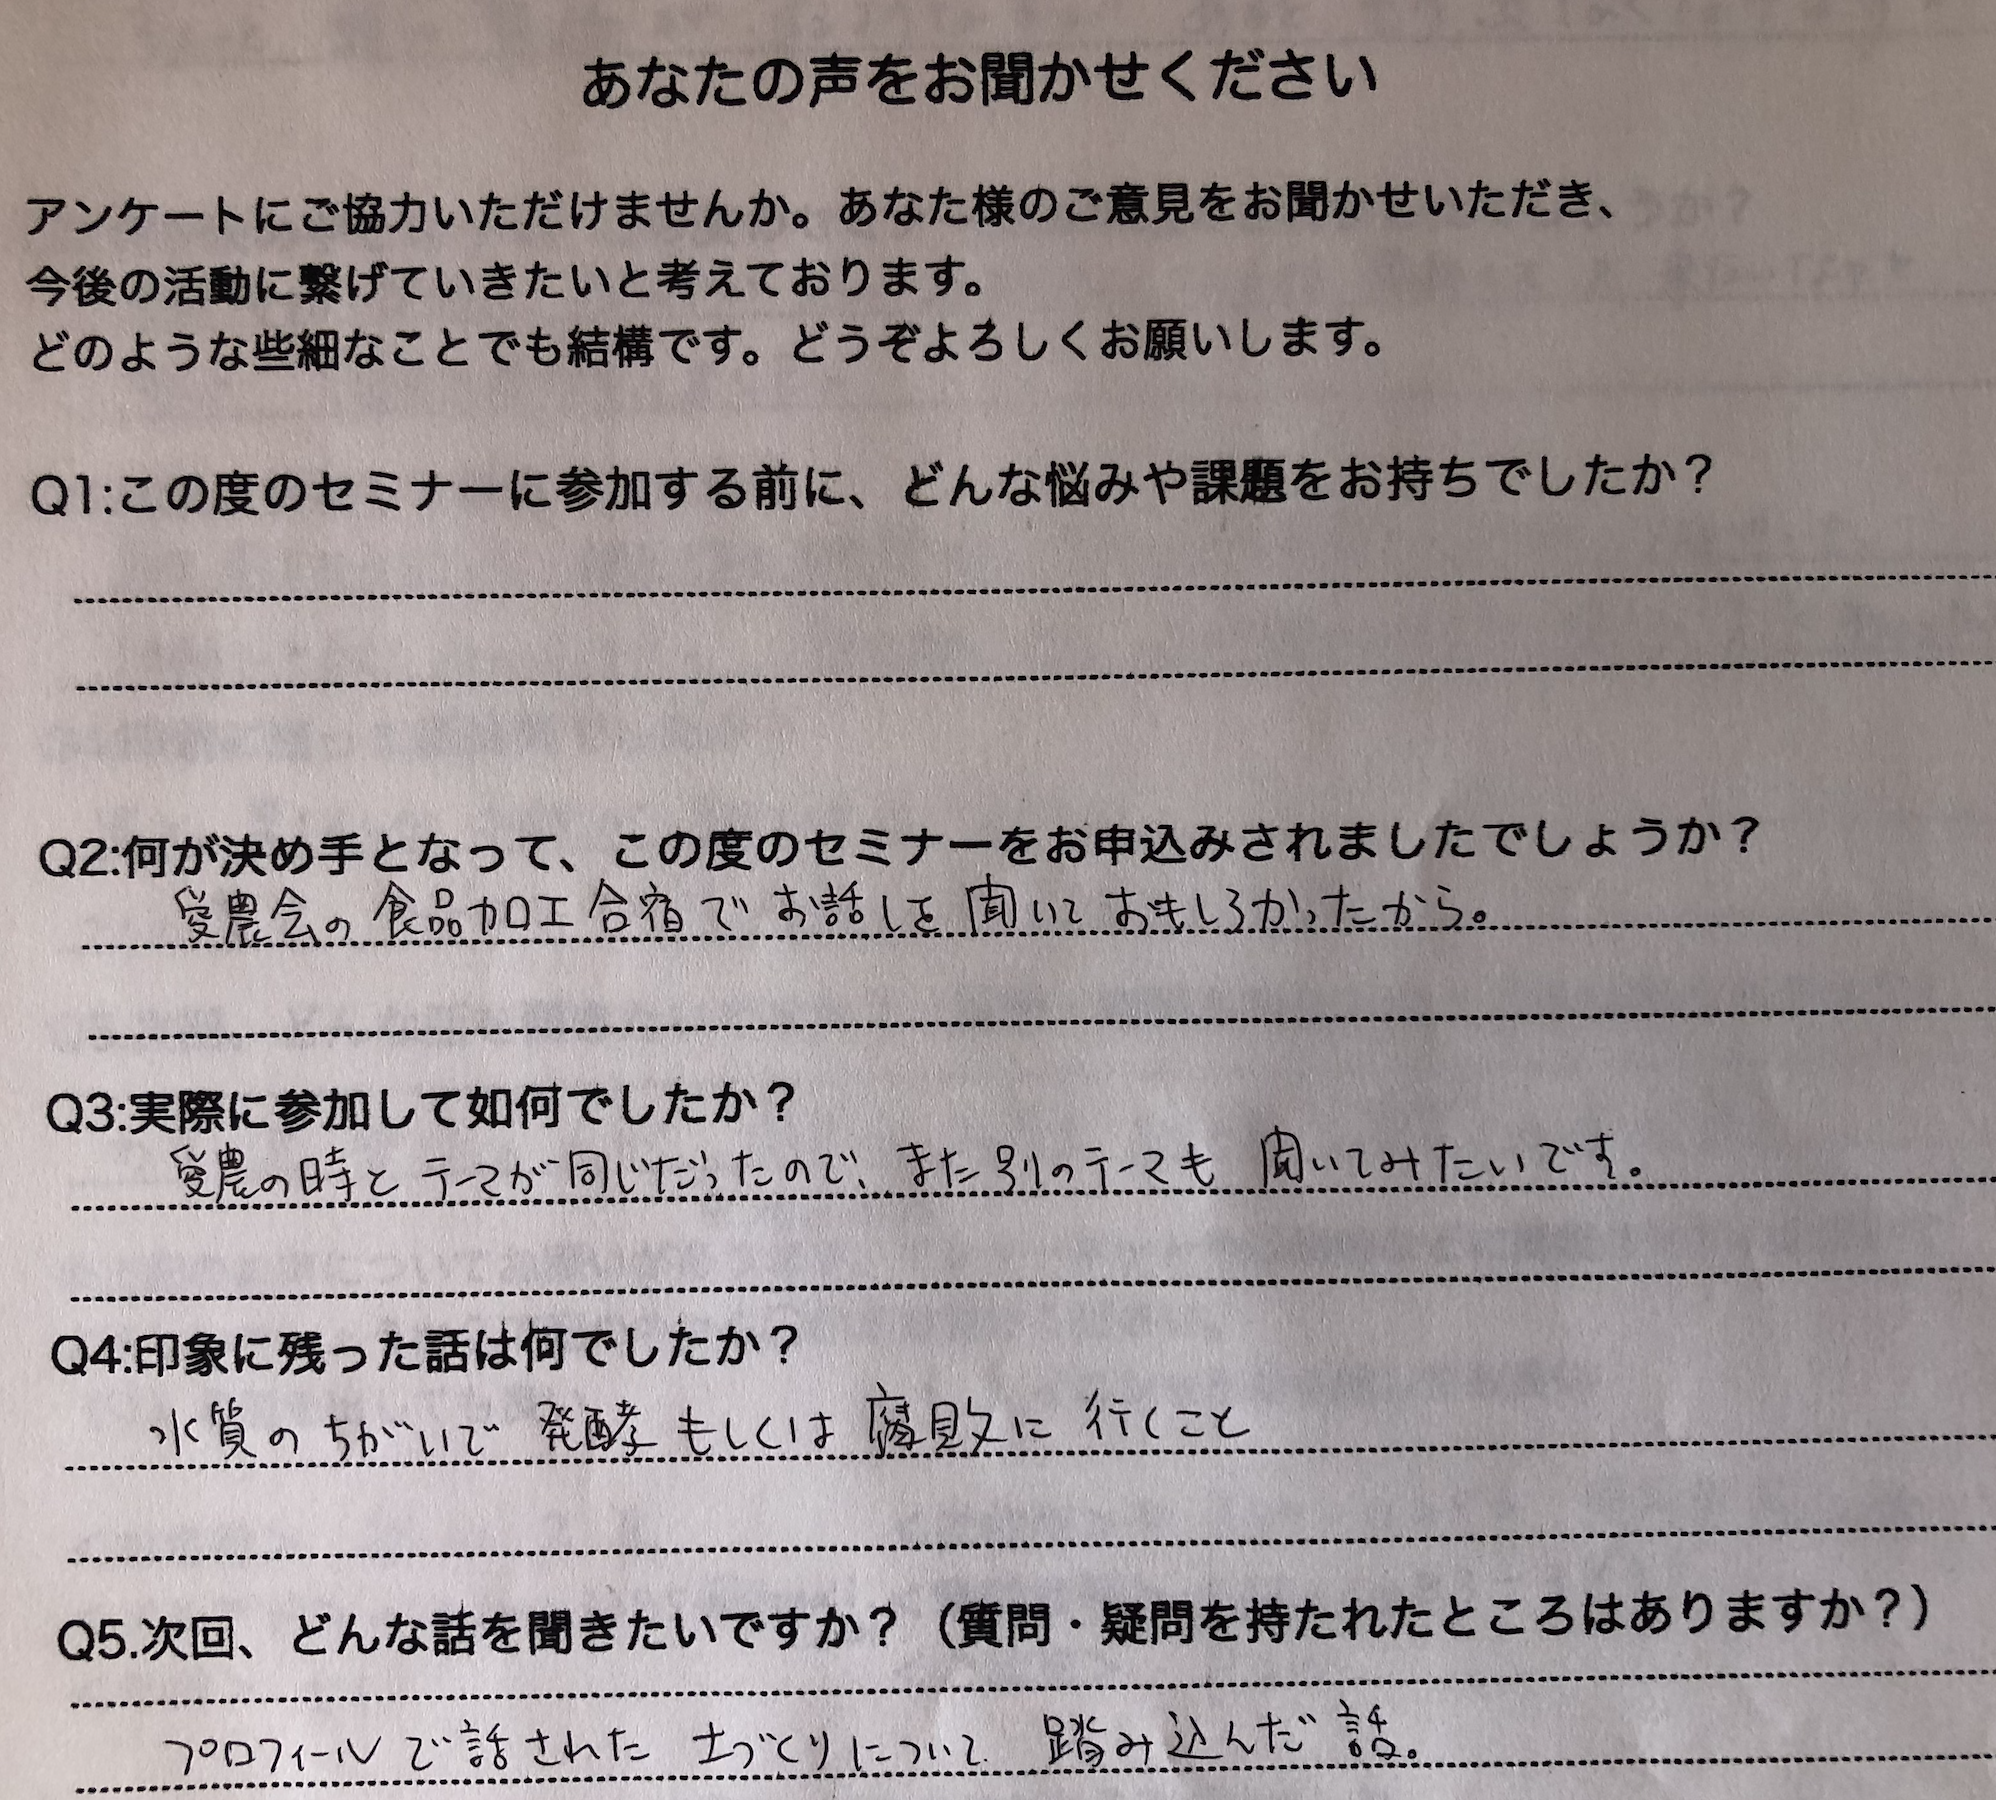 あなたの声をお聞かせください
アンケートにご協力いただけませんか。あなた様のご意見をお聞かせいただき、
今後の活動に繋げていきたいと考えております。
どのような些細なことでも結構です。どうぞよろしくお願いします。
Q1:この度のセミナーに参加する前に、どんな悩みや課題をお持ちでしたか？
Q2:何が決め手となって、この度のセミナーをお申込みされましたでしょうか？
愛農会の食品加工合宿でお話しを聞いておもしろかったから。
Q3:実際に参加して如何でしたか？
愛農の時とテーマが同じだったので、また別のテーマも聞いてみたいです。
Q4:印象に残った話は何でしたか？
水質のちがいで発酵もしくは腐敗に行くこと
Q5.次回、どんな話を聞きたいですか？（質問・疑問を持たれたところはありますか？）
プロフィールで話された土づくりについて踏み込んだ話。